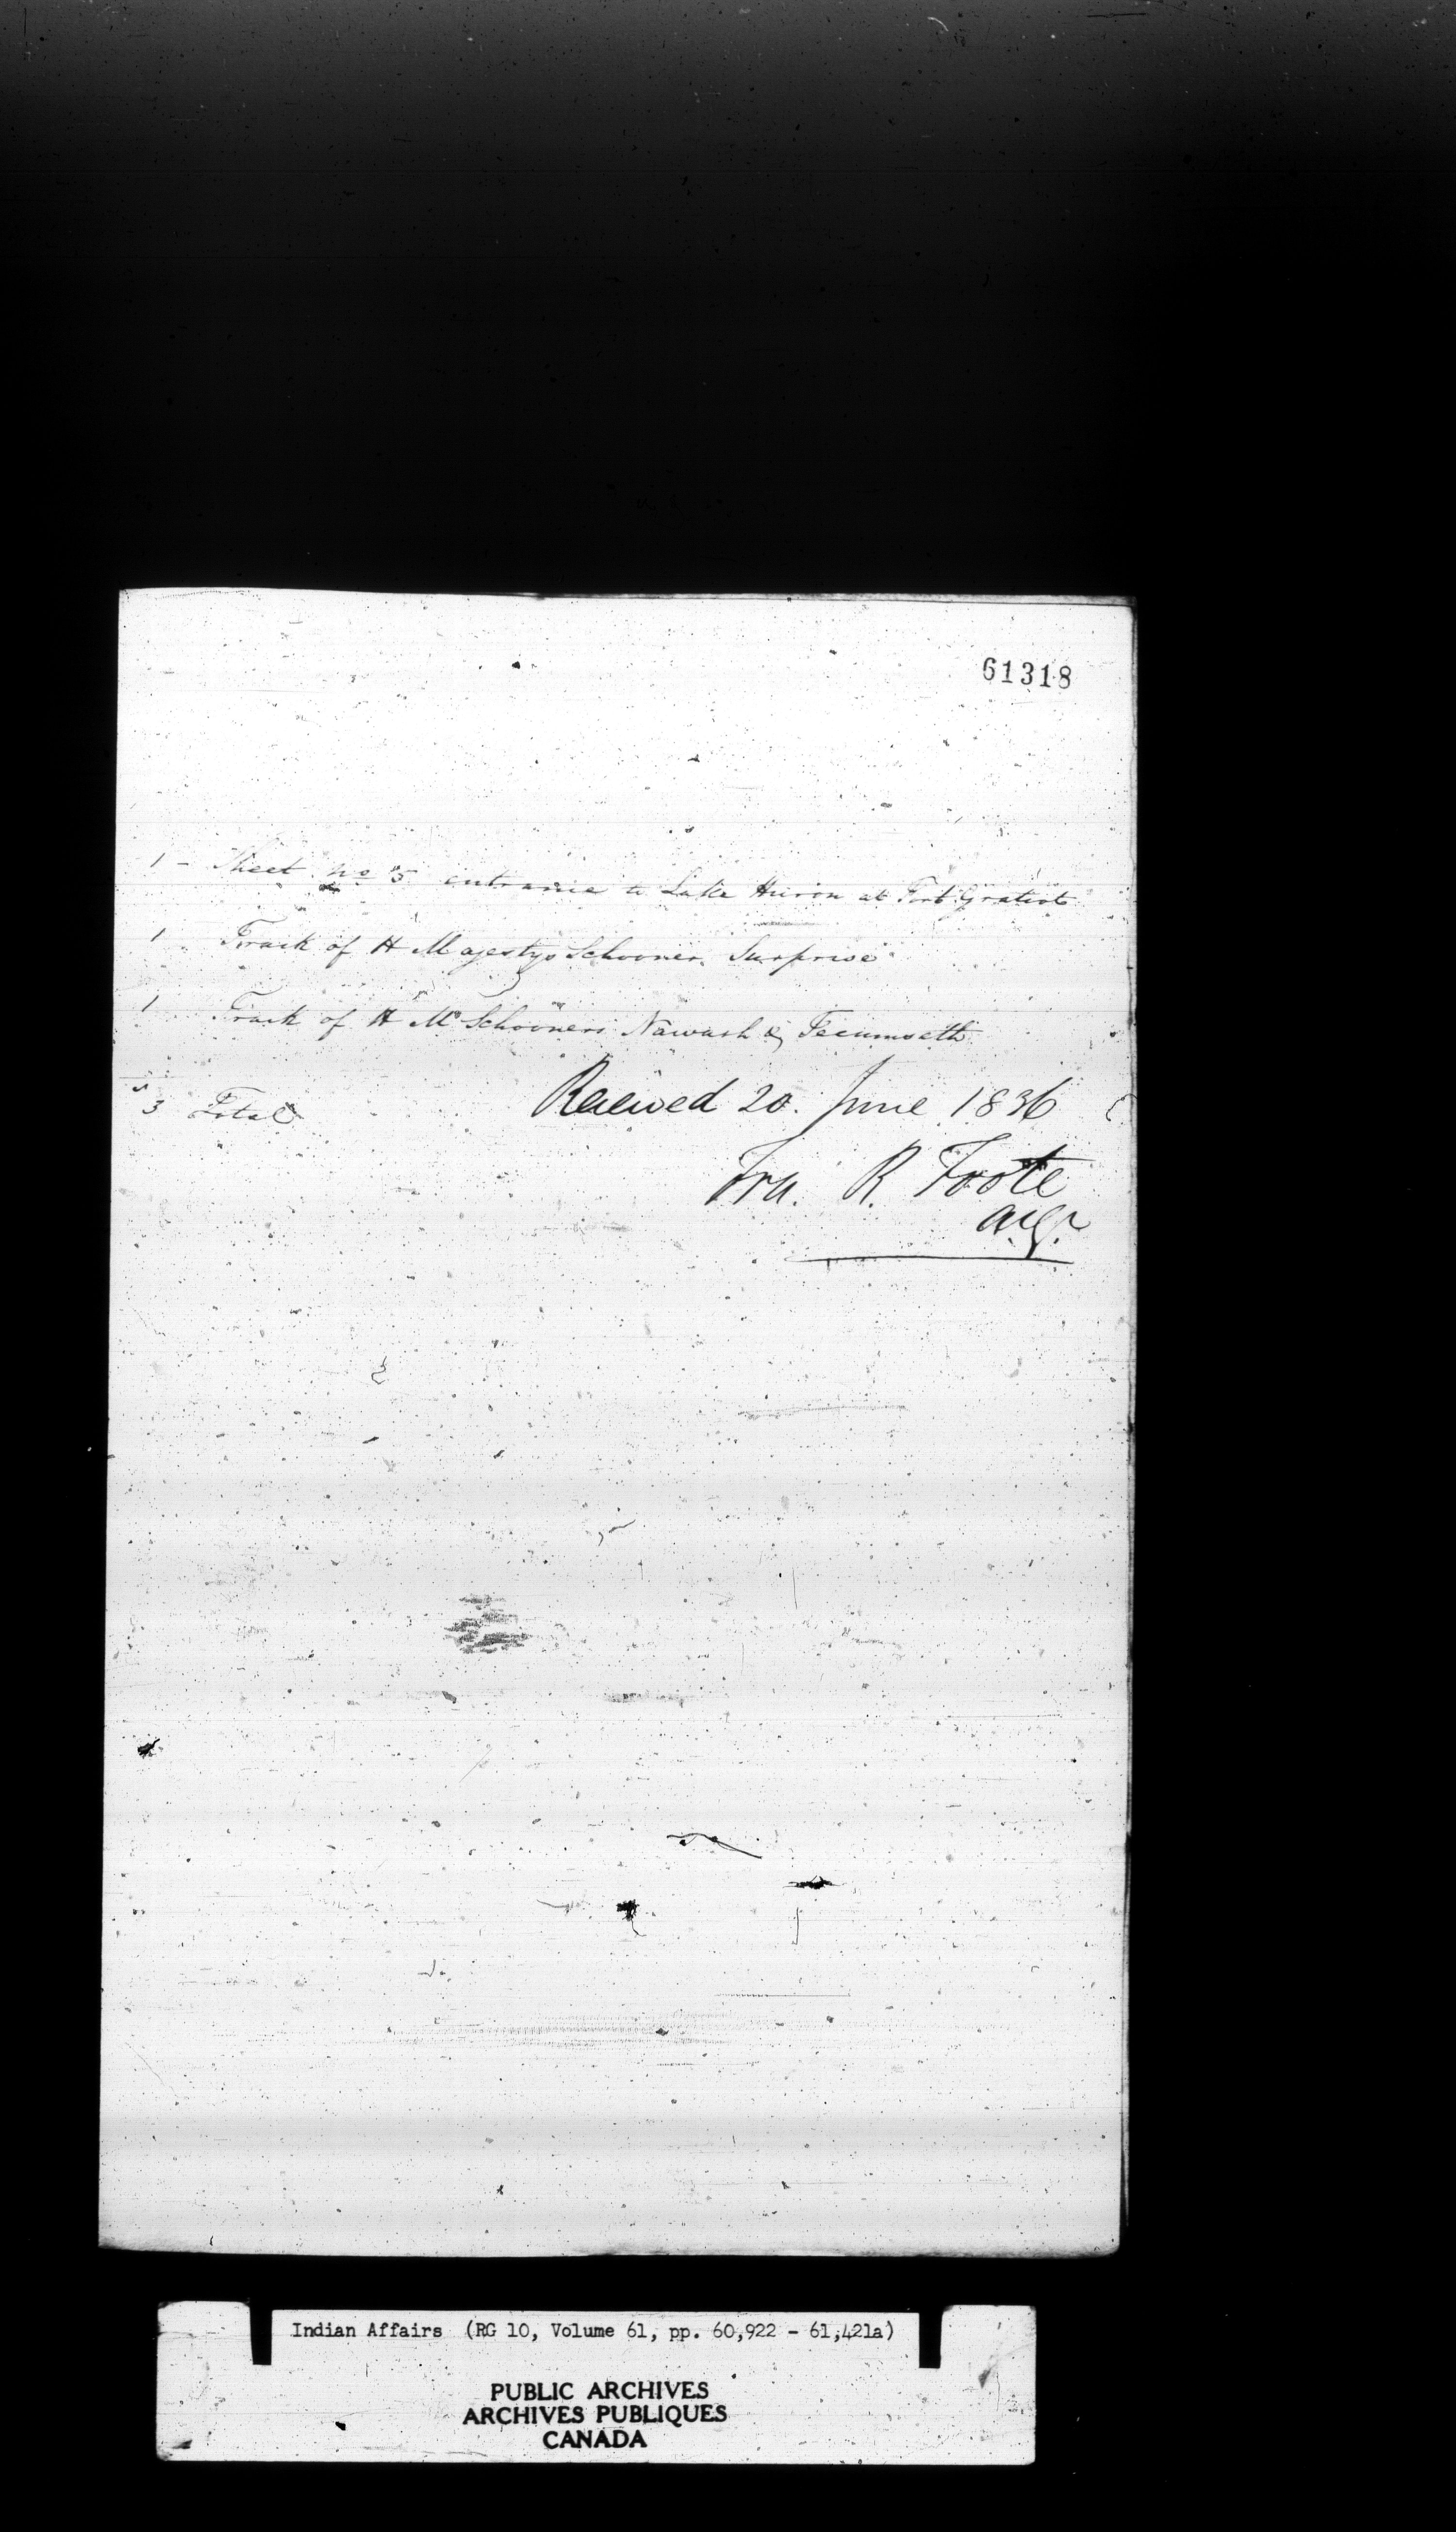 61318
1 - Sheet No 5 entrance to Lake Huron at Fort Gratiot
1 Track of H Majestys Schooner Surprise
1 Track of H Ms Schooners Nawash & Tecumseth
3 Total
Received 20. June 1836
Fra. R. Foote
Indian Affairs (RG 10, Volume 61, pp. 60,922 - 61,421a)
PUBLIC ARCHIVES
ARCHIVES PUBLIQUES
CANADA